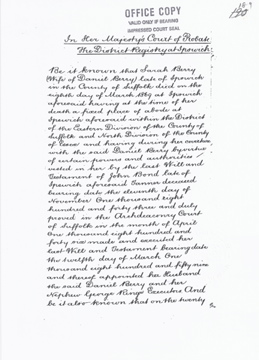 OFFICE COPY
VALID ONLY IF BEARING
IMPRESSED COURT SEAL
In Her Majesty's Court of Probate
The District Registry at Ipswich
Be it known that Sarah Berry
(Wife of Daniel Berry) late of Ipswich
in the County of Suffolk died on the
eighth day of March 1859 at Ipswich
aforesaid having at the time of her
death a fixed place of abode at
Ipswich aforesaid within the District
of the Eastern Division of the County of
Suffolk and North Division of the County
of Essex and having during her coverture
with the said Daniel Berry by virtue
of certain powers and authorities
vested in her by the last Will and
Testament of John Bond late of
Ipswich aforesaid Tanner deceased
bearing date the eleventh day of
November One thousand eight
hundred and forty three and duly
proved in the Archdeaconry Court
of Suffolk in the month of April
One thousand eight hundred and
forty six made and executed her
last Will and Testament bearing date
the twelfth day of March One
thousand eight hundred and fifty nine
and thereof appointed her Husband
the said Daniel Berry and her
Nephew George Ringe Executors And
be it also known that on the twenty